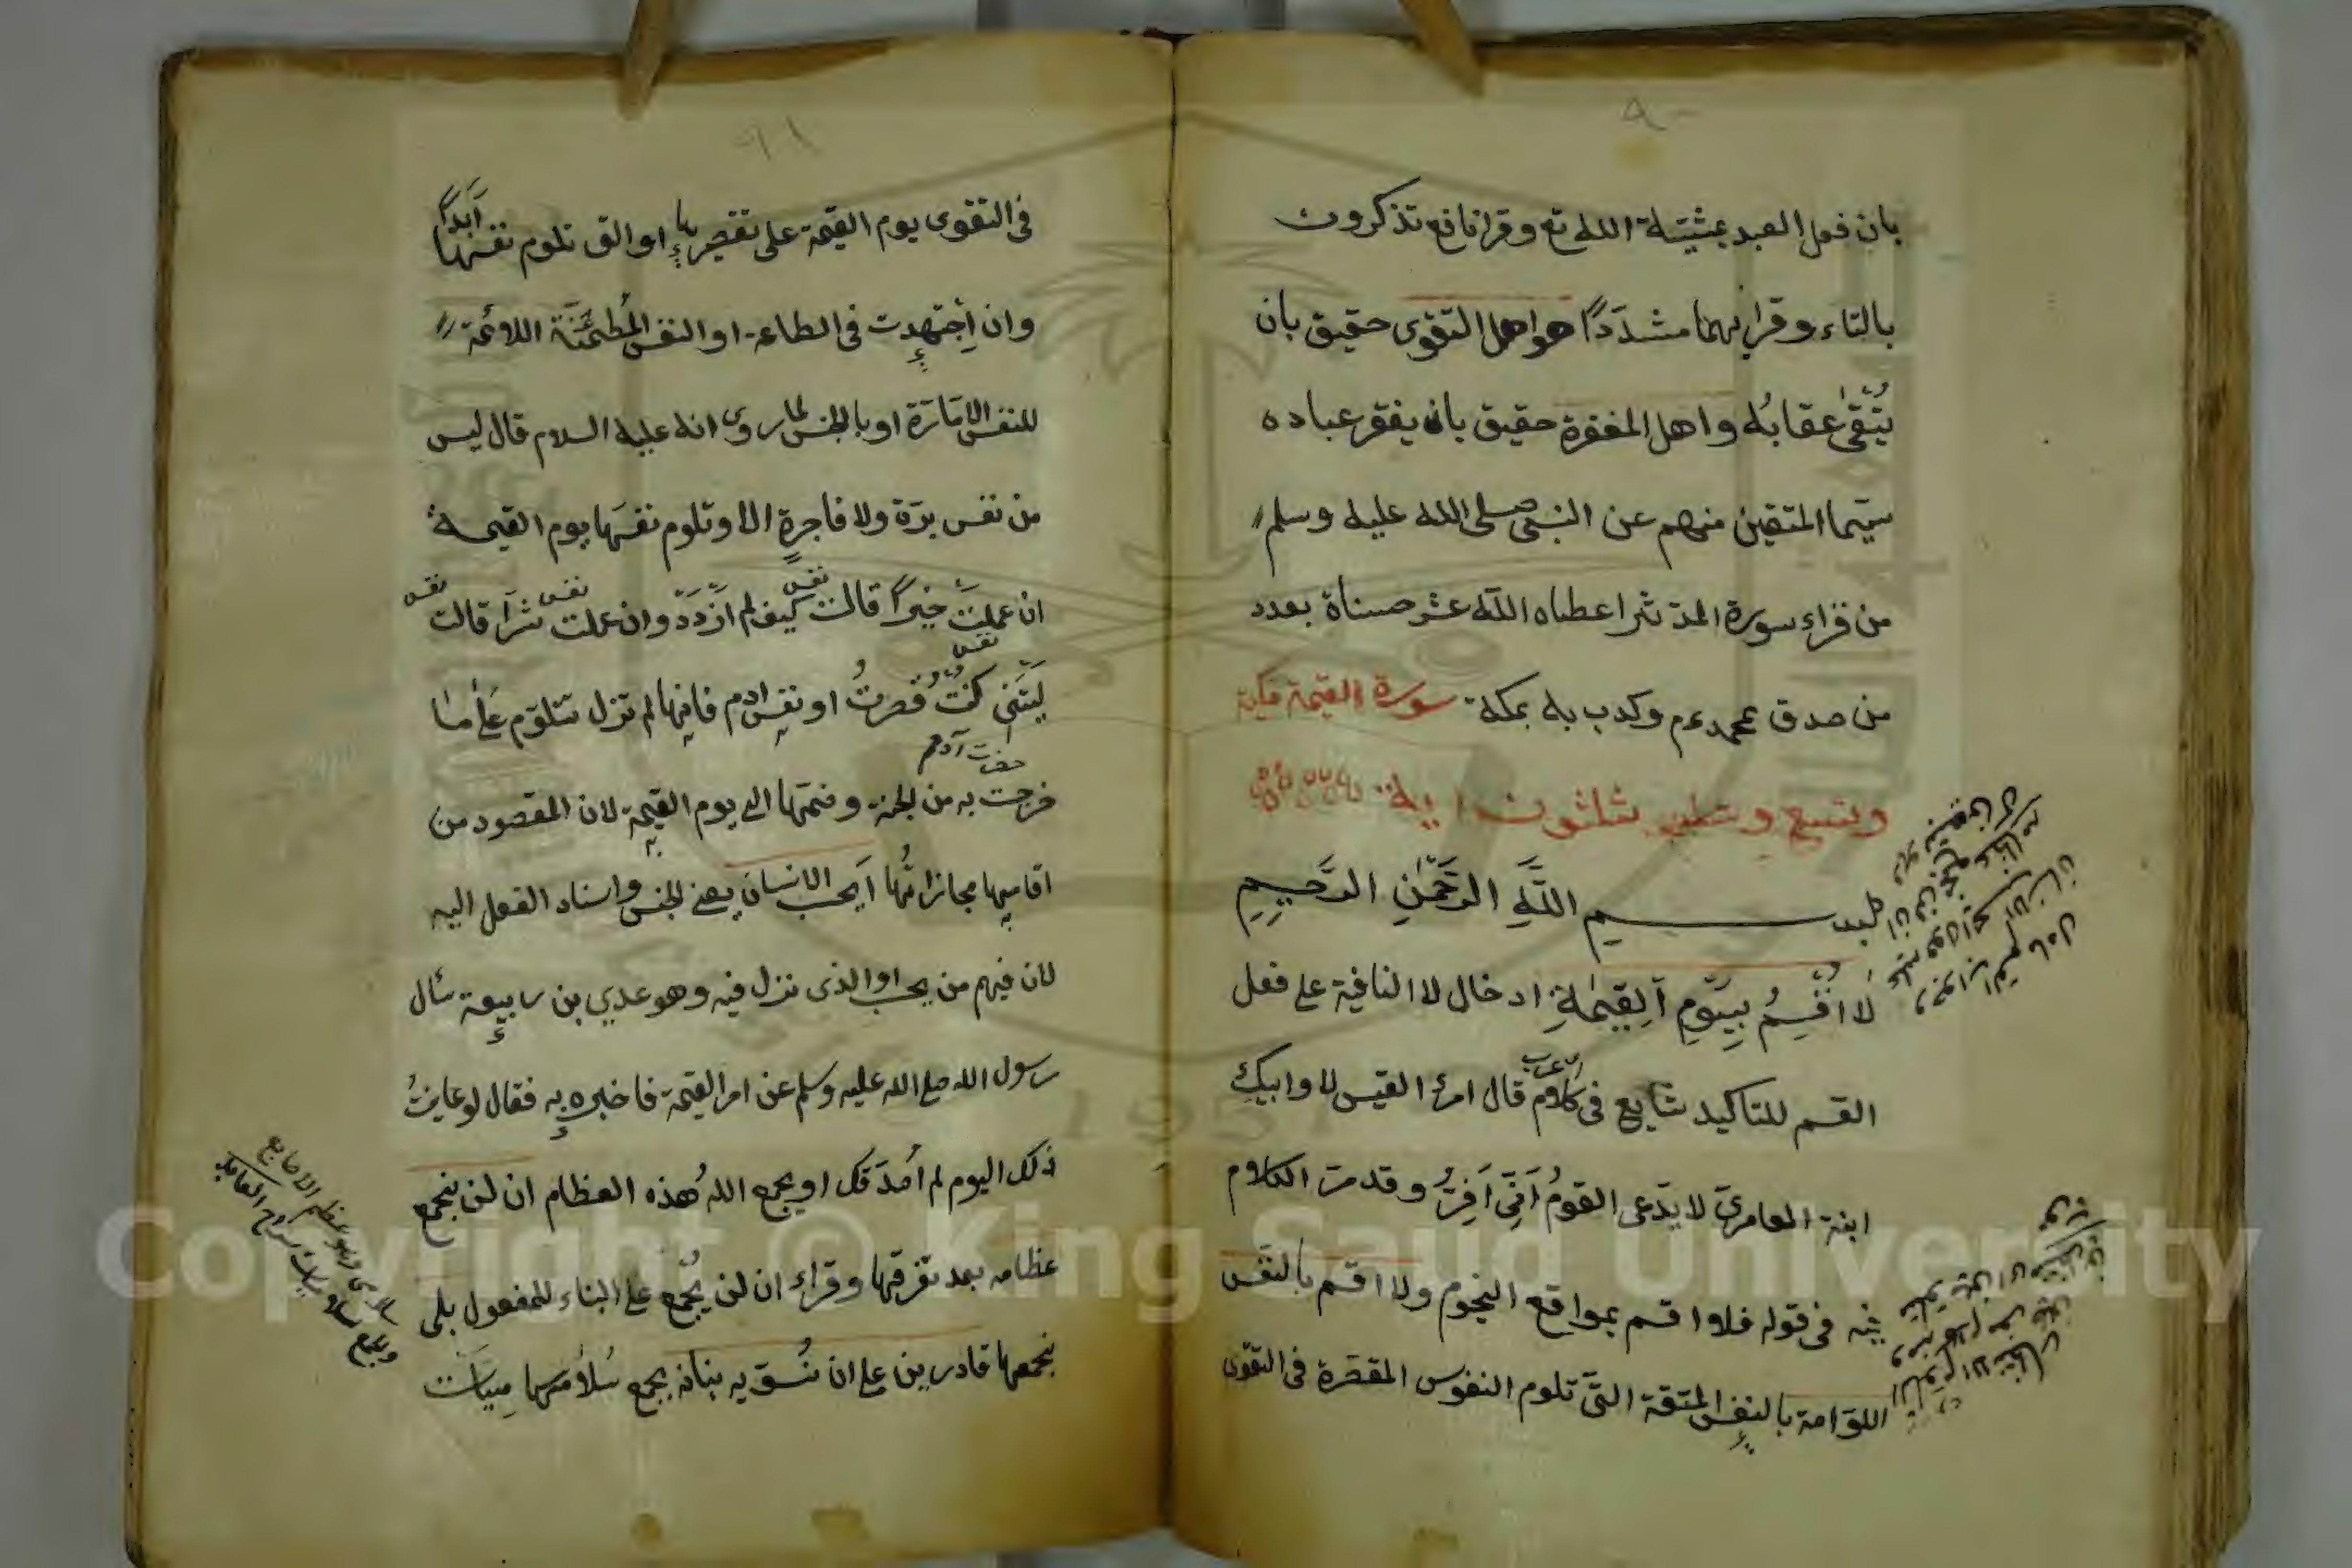 ٩٠
بان فعل العبد بمشيّئة الله تع وقرأ نافع تذكرون
بالتاء وقرئ بهما مشدّدًا هو اهل التقوى حقيق بان
يُتّقى عقابُه واهل المغفرة حقيق بان يغفر عباده
سيّما المتقين منهم عن النبى صلى الله عليه وسلم
من قراء سورة المدّثر اعطاه الله عشر حسناة بعدد
من صدق بمحمد عم وكدب به بمكة سورة القيمة مكية
وتسع وثلثون اية
بسم اللَّهِ الرَّحْمٰنِ الرَّحِيمِ
لا اُقْسِمُ بِيَوْمِ اَلِقيٰمةِ ادخال لا النافية على فعل
القسم للتاكيد شايع فى كلام العرب قال امرئ القيس لا وابيكِ
ابنة العامرىّ لا يدّعى القومُ اَنّى اَفِرُّ وقدمرّ الكلام
فيه فى قوله فلا اقسم بمواقع النجوم ولا اقسم بالنفس
اللوّامة بالنفس المتقة التى تلوم النفوس المقصّرة فى التقوى
٩١
فى التقوى يوم القيمة على تقصيرها او التى تلوم نفسها أبدًا
وان اجتهدت فى الطاعة او النفس المُطمئنّة اللائمة
للنفس الامّارة او بالجنس لما روى انه عليه السلام قال ليس
من نفس برّة ولا فاجرةٍ الا وتلوم نفسَها يوم القيمة
ان عملت خيرًا قالت نفس كيف لم اَزْدَدْ وان عملت نفس شرّا قالت نفس
ليتنى كنتُ قصرتُ او نفس ادم فانها لم تزل تتلوّم على ما
حضرت آدم
خرجت به من الجنة وضمّها الى يوم القيمة لان المقصود من
اقامتها مجازاتُها اَيحسب الانسان يعنى الجنس واسناد الفعل اليه
لان فيهم من يحسب او الذى نزل فيه وهو عدي بن ربيعة سئال
رسول الله صلى الله عليه وسلم عن امر القيمة فاخبره به فقال لو عاينتُ
ذلك اليوم لم اُصدّقك او يجمع اللهُ هذه العظام ان لن نجمع
عظامه بعد تفرقها وقراء ان لن يُجْمع على البناء للمفعول بلى
نجمعها قادرين على ان نُسوّيه بنانه بجمع سُلامٰيها